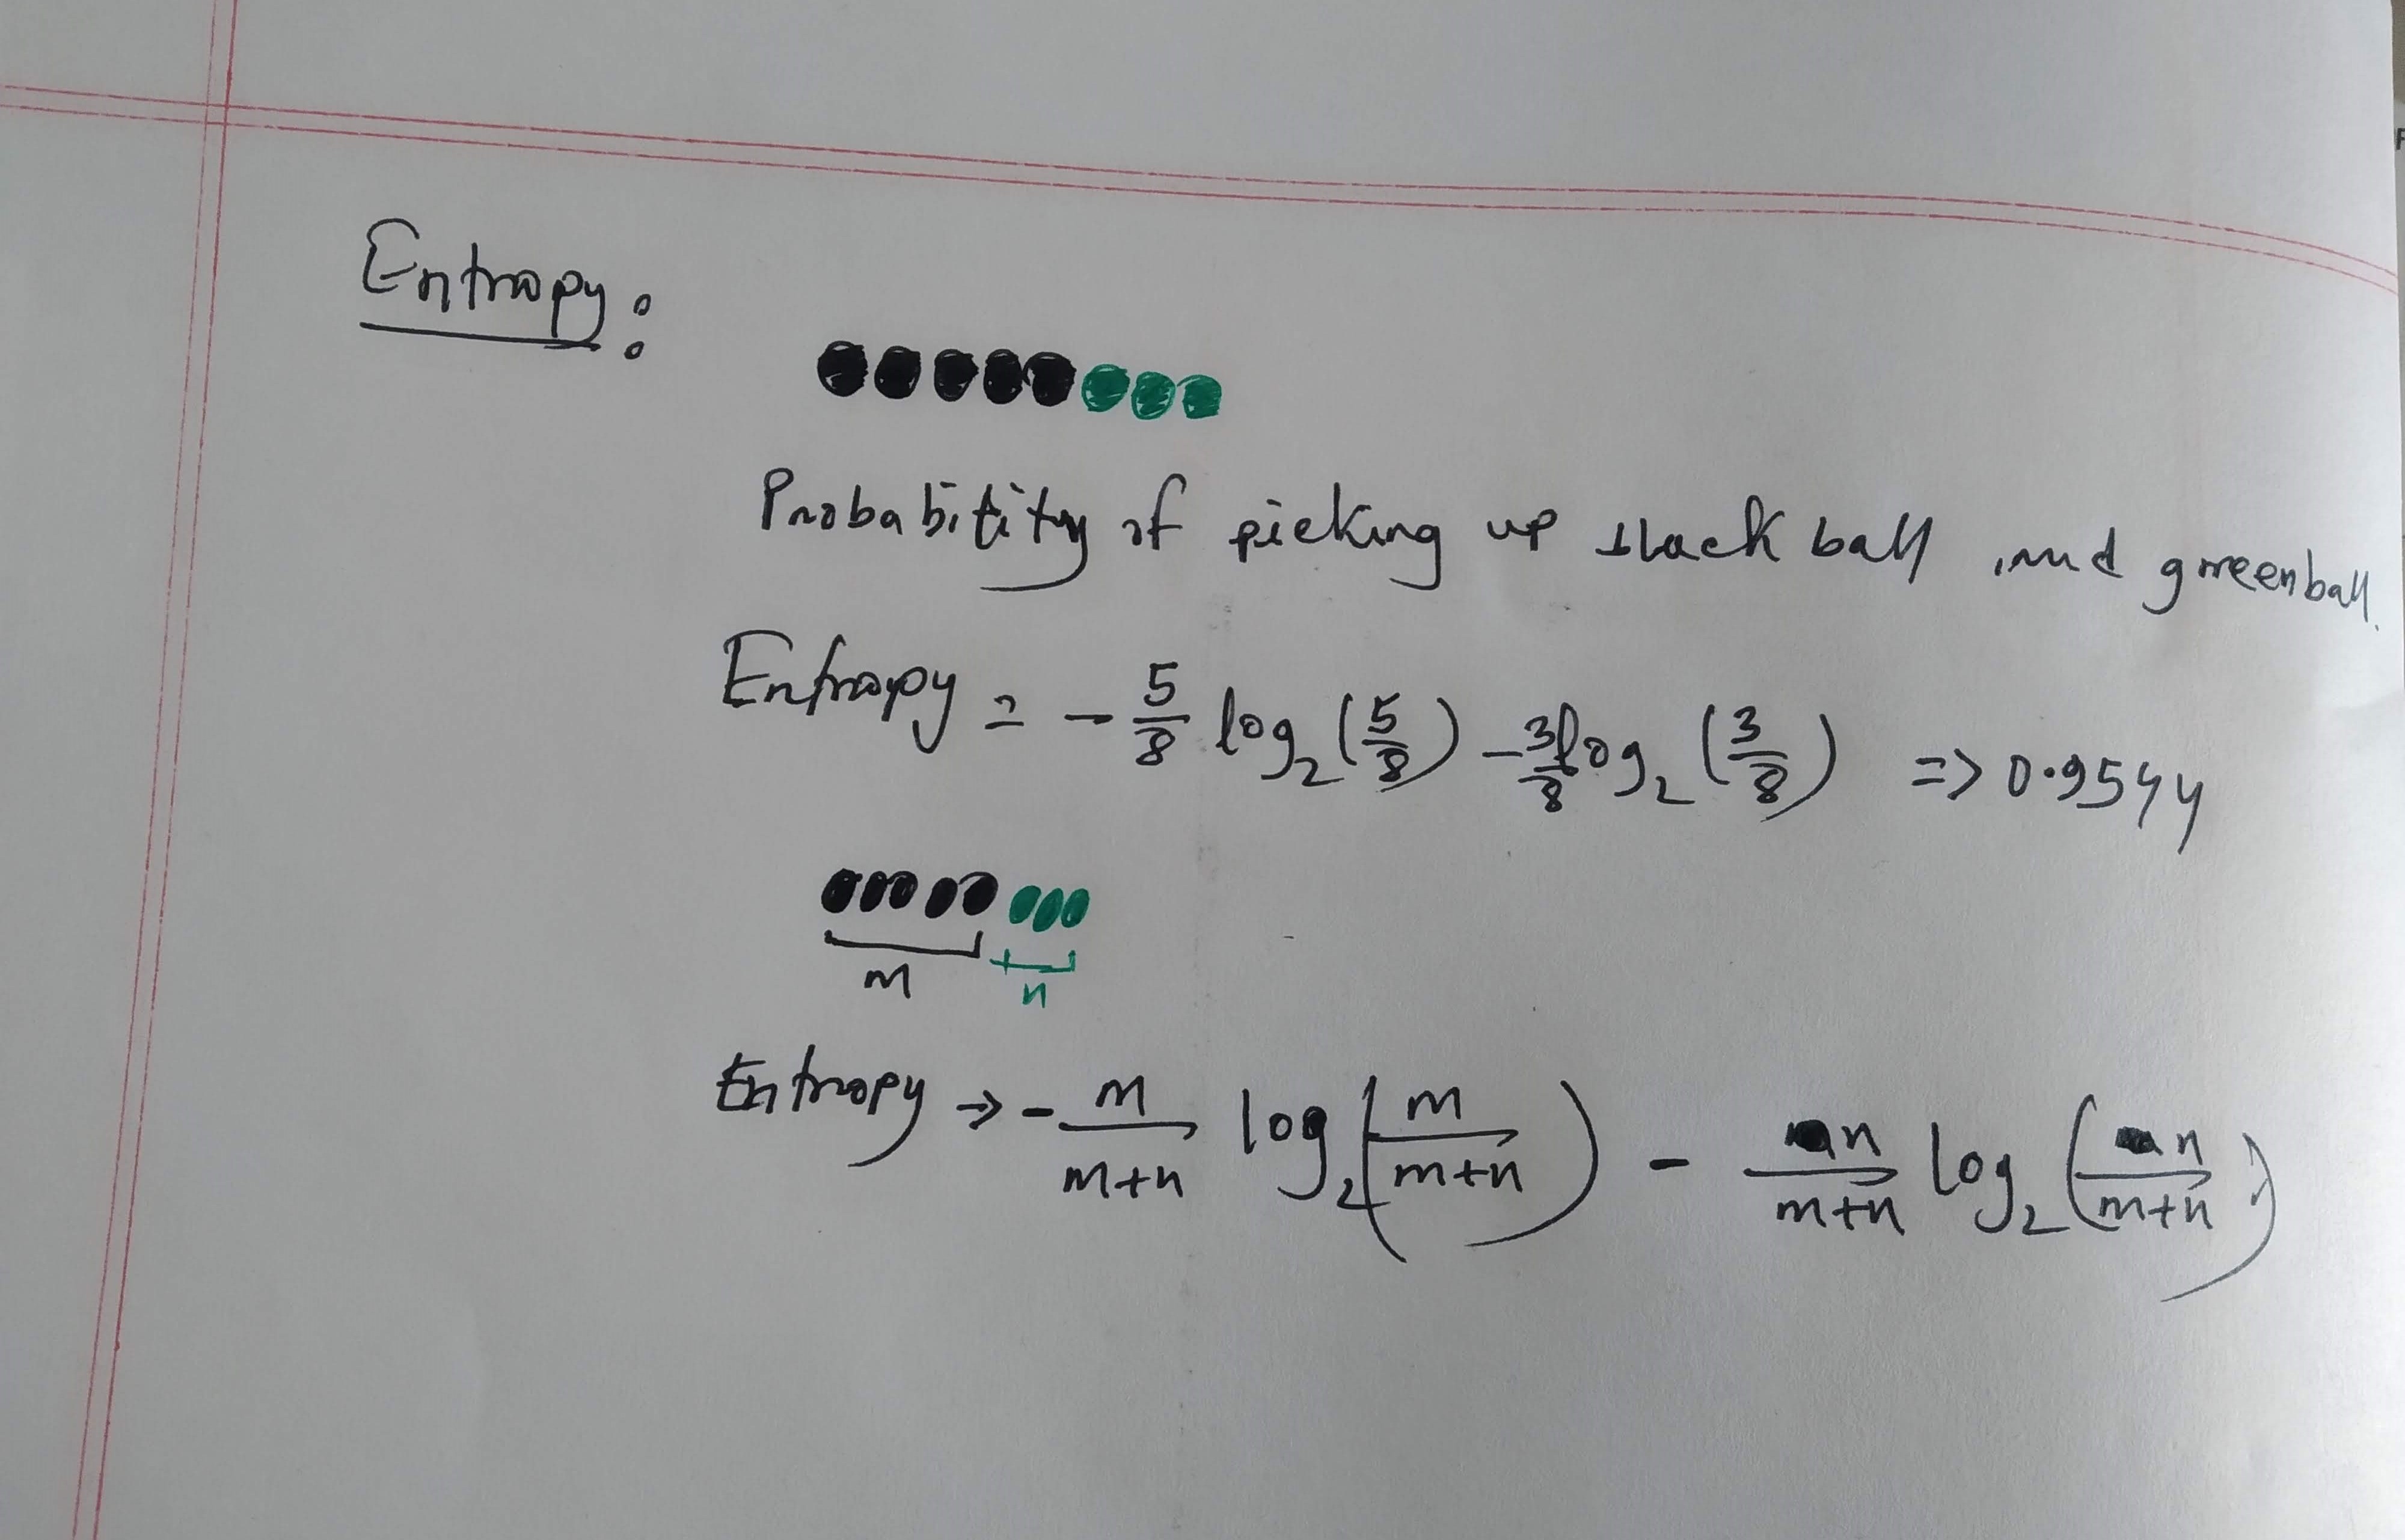 Entropy:
Probability of picking up black ball and greenball.
Entropy = - 5/8 log₂(5/8) - 3/8 log₂(3/8) => 0.9544
m n
Entropy → - m/m+n log₂(m/m+n) - n/m+n log₂(n/m+n)